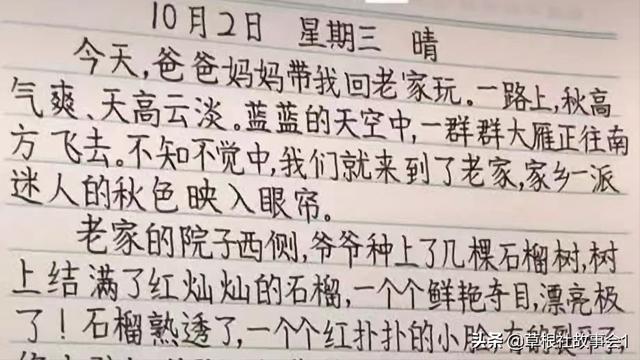 10月2日 星期三 晴
今天,爸爸妈妈带我回老家玩。一路上,秋高
气爽、天高云淡。蓝蓝的天空中,一群群大雁正往南
方飞去。不知不觉中,我们就来到了老家,家乡一派
迷人的秋色映入眼帘。
老家的院子西侧,爷爷种上了几棵石榴树,树
上结满了红灿灿的石榴,一个个鲜艳夺目,漂亮极
了!石榴熟透了,一个个红扑扑的小脸
头条 @草根社故事会1